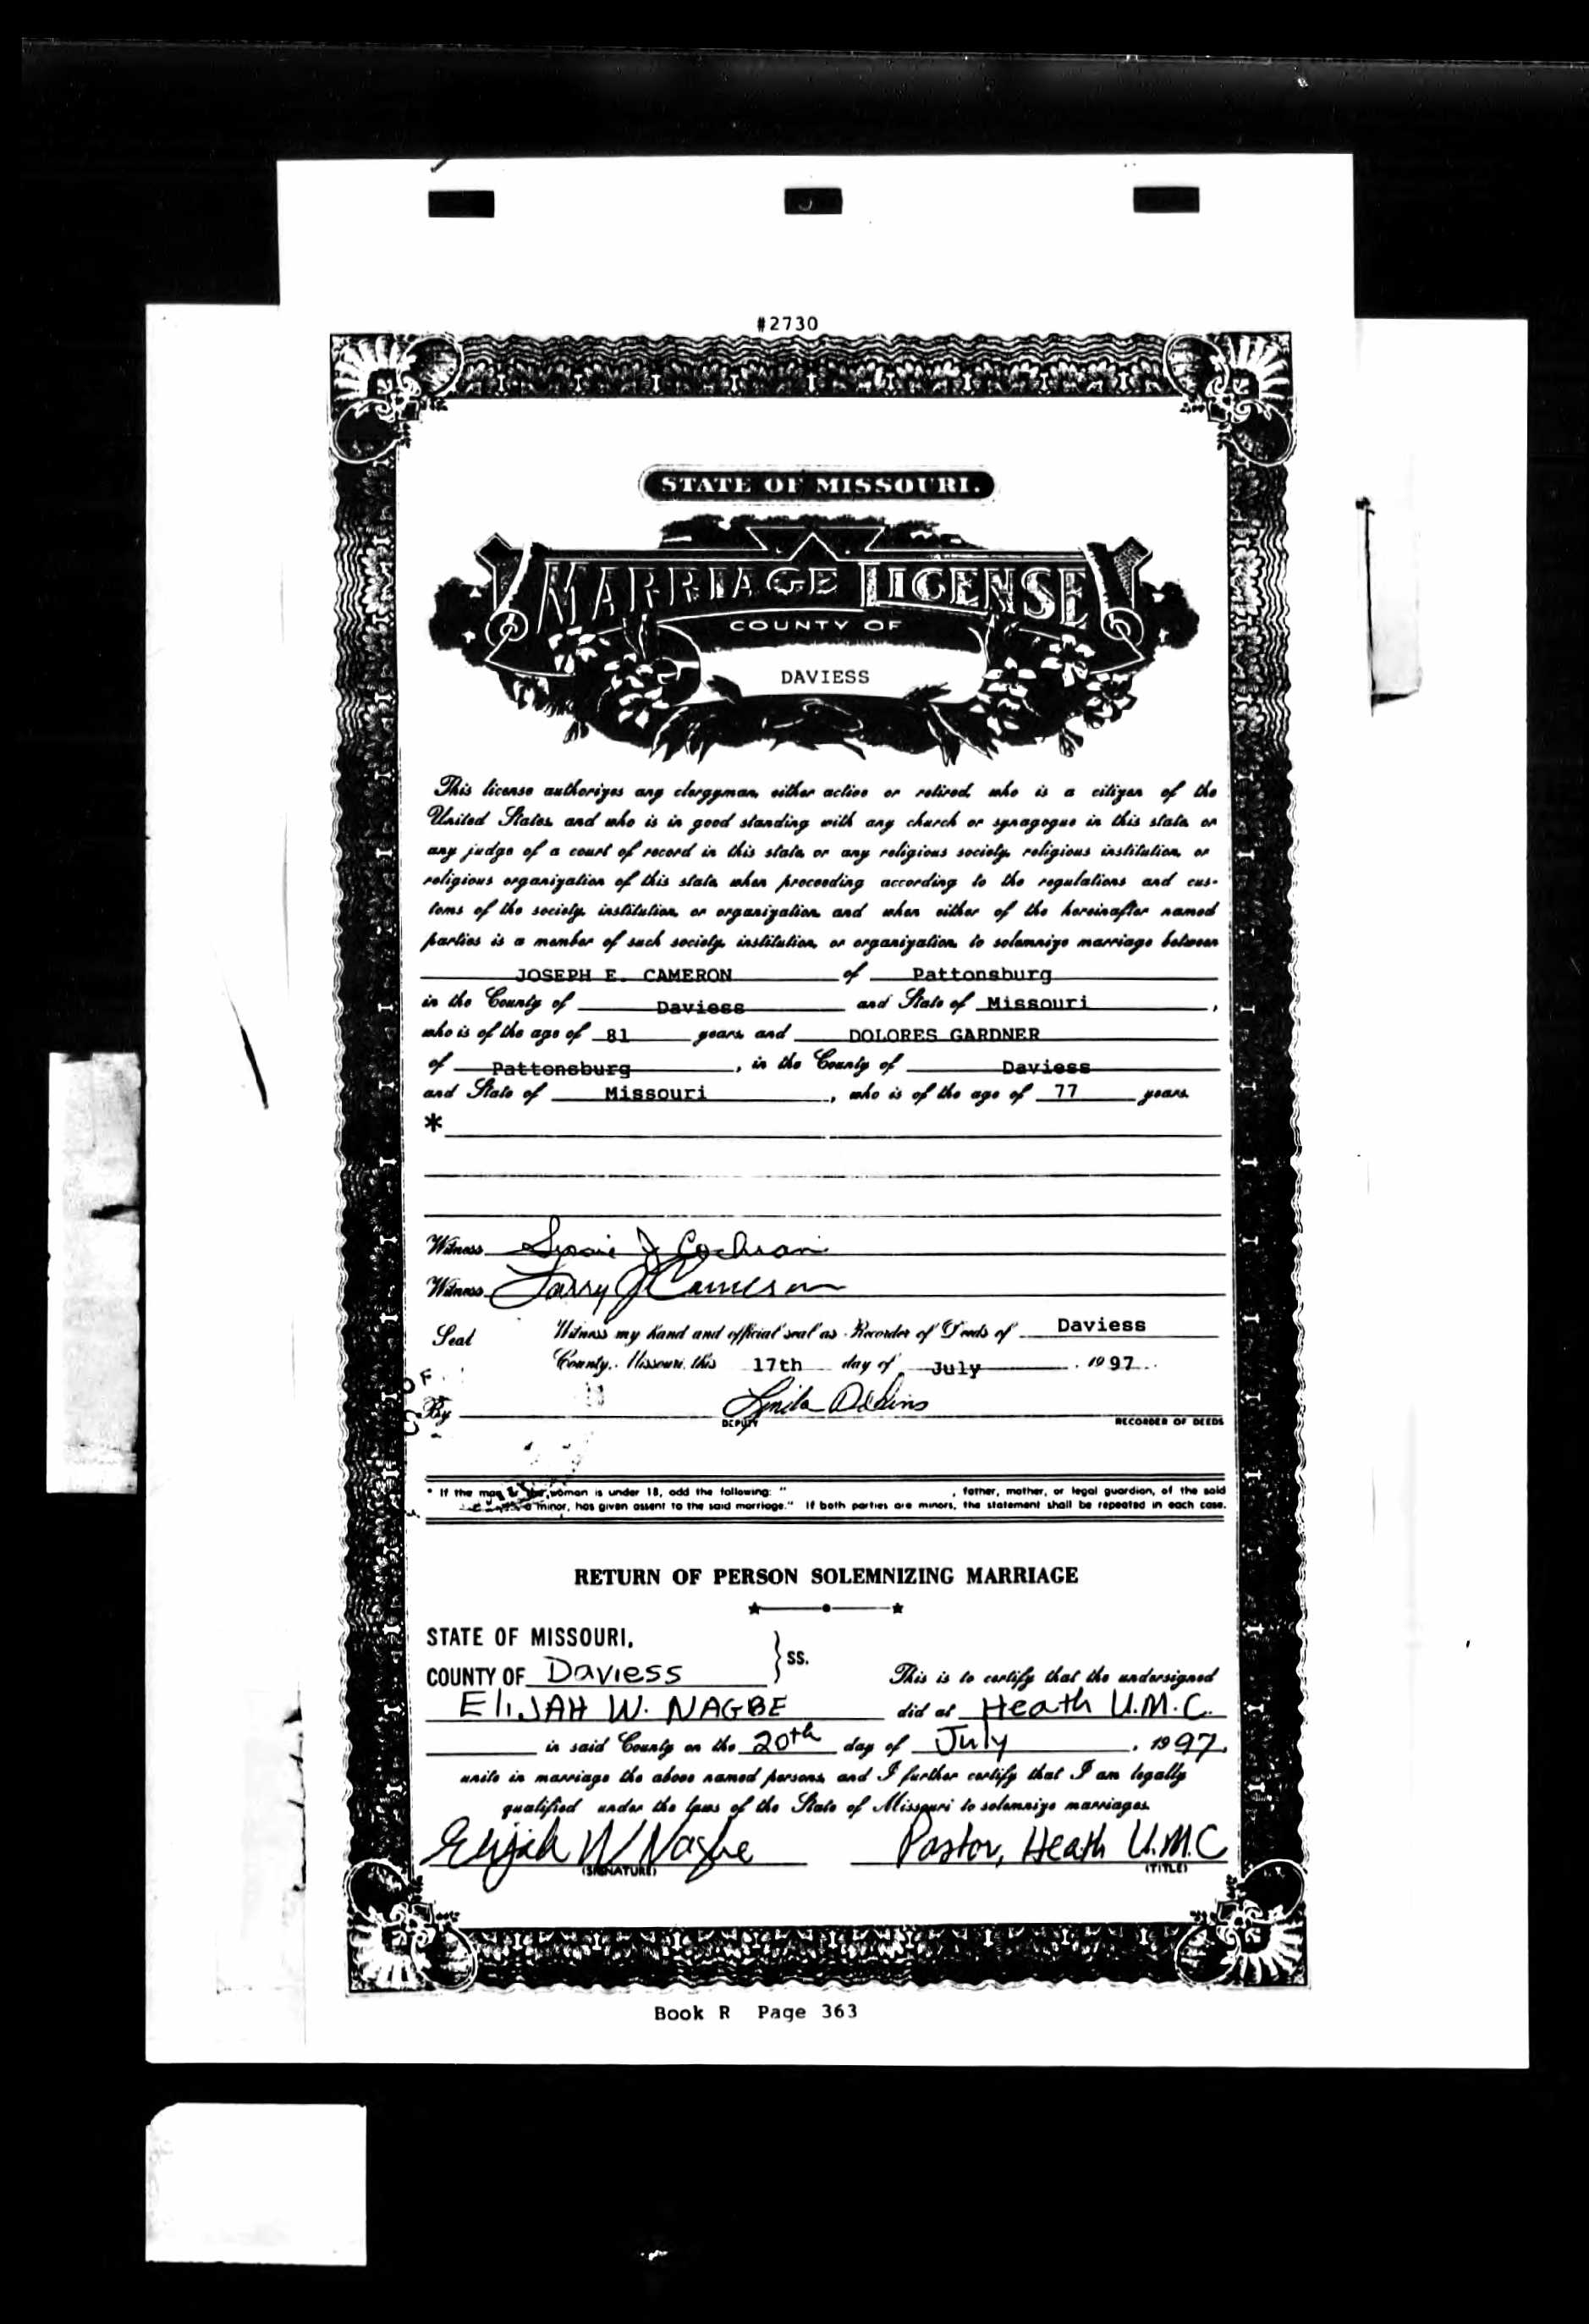 #2730
STATE OF MISSOURI.
MARRIAGE LICENSE
COUNTY OF
DAVIESS
This license authorizes any clergyman, either active or retired, who is a citizen of the
United States, and who is in good standing with any church or synagogue in this state, or
any judge of a court of record in this state, or any religious society, religious institution, or
religious organization of this state, when proceeding according to the regulations and cus-
toms of the society, institution, or organization, and when either of the hereinafter named
parties is a member of such society, institution, or organization, to solemnize marriage between
JOSEPH E. CAMERON of Pattonsburg
in the County of Daviess and State of Missouri,
who is of the age of 81 years, and DOLORES GARDNER
of Pattonsburg, in the County of Daviess
and State of Missouri, who is of the age of 77 years.
*
Witness J Cochran
Witness Larry J Cameron
Seal Witness my hand and official seal as Recorder of Deeds of Daviess
County, Missouri, this 17th day of July, 1997.
OF
By
DEPUTY RECORDER OF DEEDS
* If the man or the woman is under 18, add the following: " , father, mother, or legal guardian, of the said
a minor, has given assent to the said marriage." If both parties are minors, the statement shall be repeated in each case.
RETURN OF PERSON SOLEMNIZING MARRIAGE
STATE OF MISSOURI,
COUNTY OF Daviess } SS. This is to certify that the undersigned
ELIJAH W. NAGBE did at Heath U.M.C.
in said County on the 20th day of July, 1997,
unite in marriage the above named persons, and I further certify that I am legally
qualified under the laws of the State of Missouri to solemnize marriages.
Elijah W Nagbe Pastor, Heath U.M.C
(SIGNATURE) (TITLE)
Book R Page 363